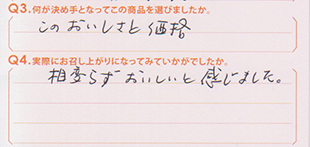 Q3.何が決め手となってこの商品を選びましたか。
このおいしさと価格
Q4.実際にお召し上がりになってみていかがでしたか。
相変らずおいしいと感じました。